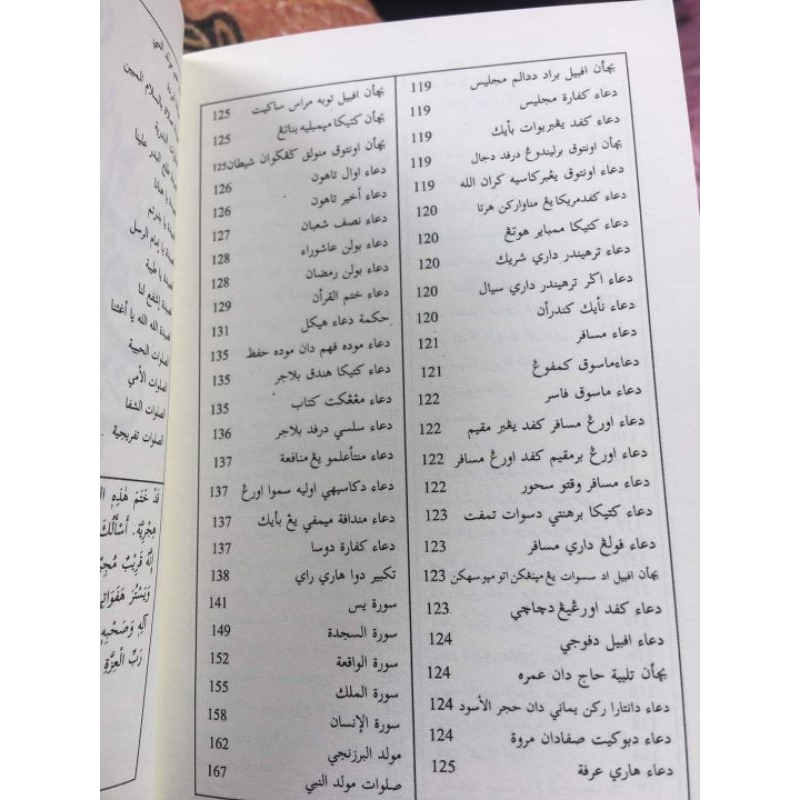 بچأن افبيل براد ددالم مجليس 119
دعاء كفارة مجليس 119
دعاء كفد يڠبربوات بأيك 119
بچأن اونتوق برليندوڠ درفد دجال 119
دعاء اونتوق يڠبركاسيه كران الله 119
دعاء كفدمريكا يڠ مناواركن هرتا 120
دعاء كتيكا ممباير هوتڠ 120
دعاء ترهيندر داري شريك 120
دعاء اكر ترهيندر داري سيال 120
دعاء نأيك كندرأن 120
دعاء مسافر 121
دعاءماسوق كمفوڠ 121
دعاء ماسوق فاسر 122
دعاء اورڠ مسافر كفد يڠبر مقيم 122
دعاء اورڠ برمقيم كفد اورڠ مسافر 122
دعاء مسافر وقتو سحور 122
دعاء كتيكا برهنتي دسوات تمفت 123
دعاء فولڠ داري مسافر 123
بچأن افبيل اد سسوات يڠ مپنڠكن اتو مپوسهكن 123
دعاء كفد اورڠيڠ دچاچي 123
دعاء افبيل دفوجي 124
بچأن تلبية حاج دان عمره 124
دعاء دانتارا ركن يماني دان حجر الأسود 124
دعاء دبوكيت صفادان مروة 124
دعاء هاري عرفة 125
بچأن افبيل توبه مراس ساكيت 125
بچأن كتيكا ميمبليه بناتڠ 125
بچأن اونتوق منولق كڤكوان شيطان 125
دعاء اوال تاهون 126
دعاء أخير تاهون 126
دعاء نصف شعبان 127
دعاء بولن عاشوراء 128
دعاء بولن رمضان 128
دعاء ختم القرأن 129
حكمة دعاء هيكل 131
دعاء موده فهم دان موده حفظ 135
دعاء كتيكا هندق بلاجر 135
دعاء مڠڠكت كتاب 135
دعاء سلسي درفد بلاجر 136
دعاء منتأعلمو يڠ منافعة 137
دعاء دكاسيهي اوليه سموا اورڠ 137
دعاء مندافة ميمفي يڠ بأيك 137
دعاء كفارة دوسا 137
تكبير دوا هاري راي 138
سورة يس 141
سورة السجدة 149
سورة الواقعة 152
سورة الملك 155
سورة الإنسان 158
مولد البرزنجي 162
صلوات مولد النبي 167
طلع البدر علينا
يا إمام الرسل
يا طيبة
إشفع لنا
الله الله يا أغثنا
صلوات الحبيبة
صلوات الأمي
صلوات الشفا
صلوات تفريجية
قَدْ خَتَمَ هٰذِهِ
هِجْرِيَّة. أَسْأَلُكَ
إِنَّهُ قَرِيْبٌ
وَيَسْتُرَ هَفَوَاتِ
آلِهِ وَصَحْبِهِ
رَبِّ الْعِزَّةِ